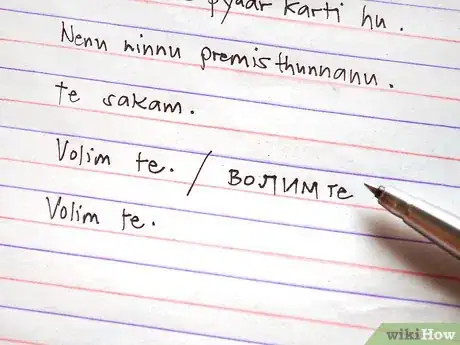 pyaar karti hu.
Nenu ninnu premisthunnanu.
Te sakam.
Volim te. / ВОЛИМ те
Volim te.
wikiHow